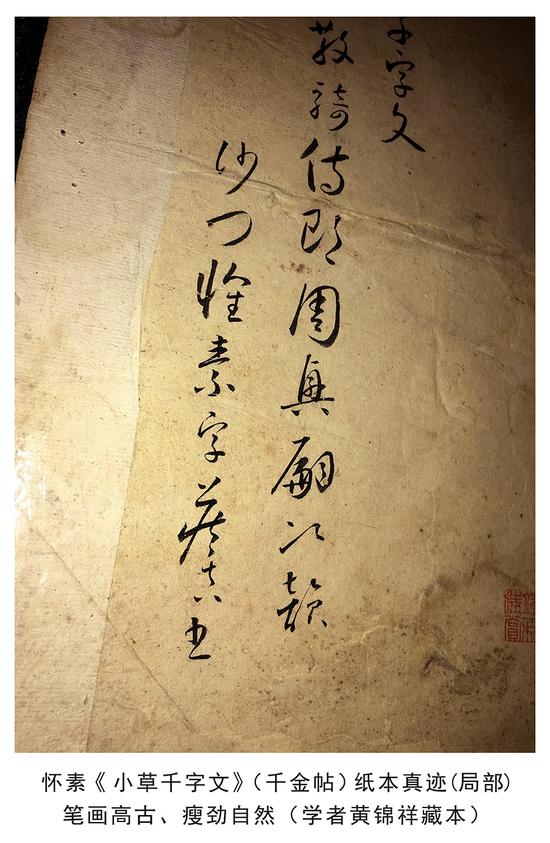 千字文
散騎侍郎周興嗣次韻
沙門懷素字藏真書
怀素《小草千字文》(千金帖)纸本真迹(局部)
笔画高古、瘦劲自然（学者黄锦祥藏本）